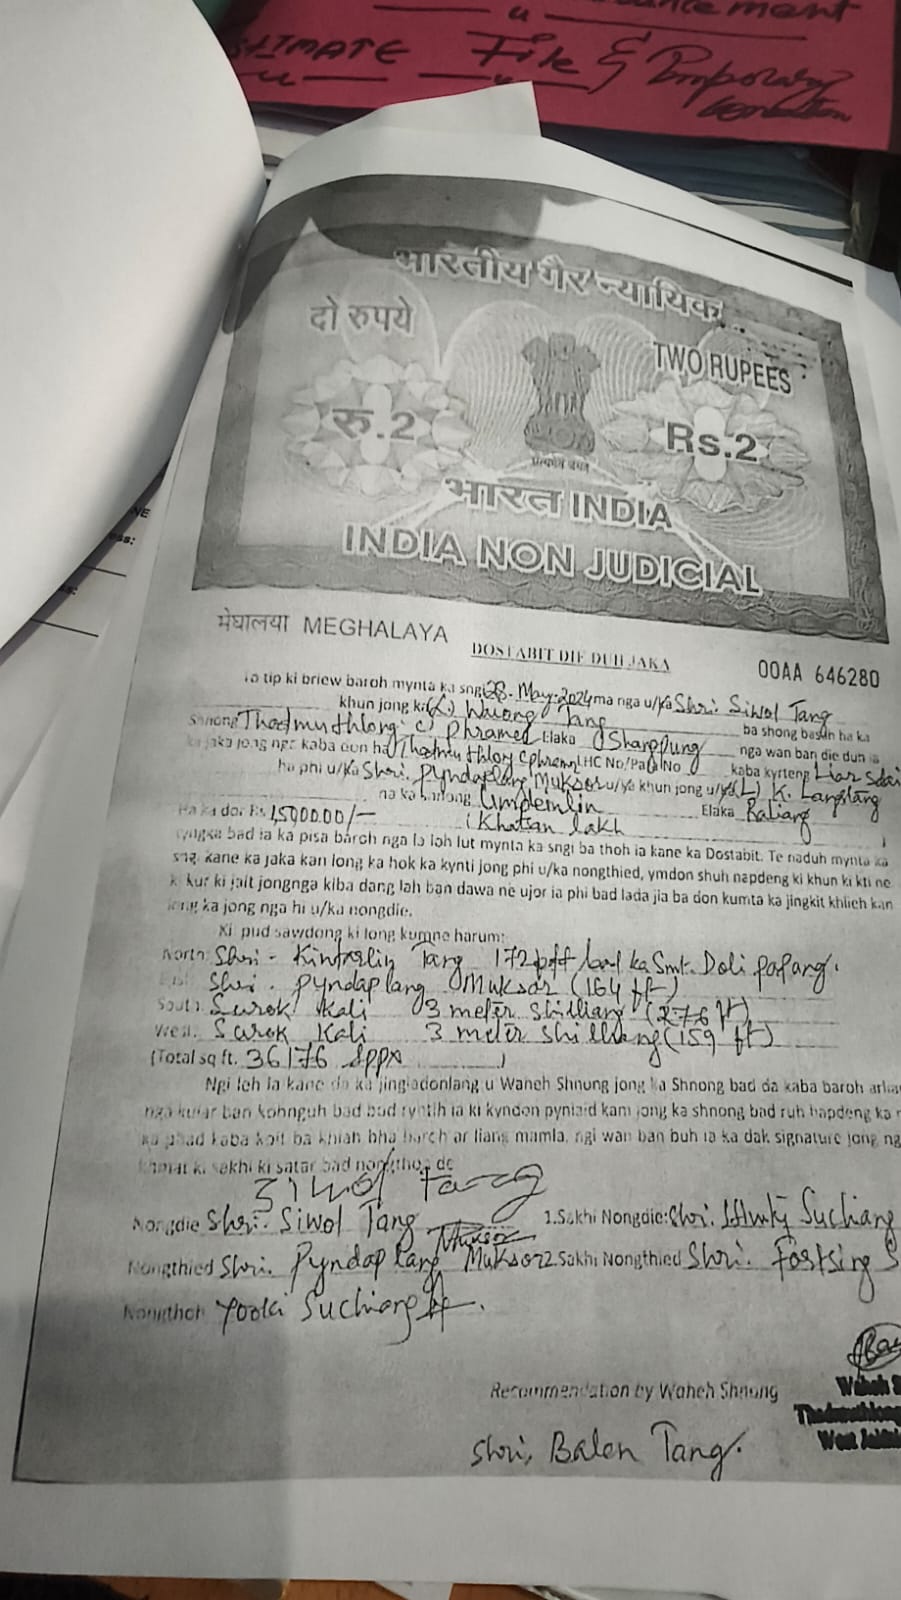 ancement
ESTIMATE File &
भारतीय गैर न्यायिक
दो रुपये
TWO RUPEES
रु.2
Rs.2
सत्यमेव जयते
भारत INDIA
INDIA NON JUDICIAL
मेघालया MEGHALAYA
DOSTABIT DIE DUH JAKA
00AA 646280
To tip ki briew baroh mynta ka sngi 28-May-2024 ma nga u/ka Shri. Siwol Tang
khun jong ki (L) Tang ba shong basah ha ka
Shnong Thadmuthlong C) Phramer Elaka nga wan ban die duh ia
ka jaka jong nga kaba don ha Thadmuthlong C phramer LHC No/Pata No kaba kyrteng
ha phi u/ka Shri. Pyndaplang Muksor u/ka khun jong u/ka (L) K. Langstang
na ka shnong Umdemlin Elaka Raliang
Ha ka dor Rs 1,500000/- (Khatsan lakh
syngsa bad ia ka pisa baroh nga la ioh lut mynta ka sngi ba thoh ia kane ka Dostabit. Te naduh mynta ka
sngi kane ka jaka kan long ka hok ka kynti jong phi u/ka nongthied, ymdon shuh napdeng ki khun ki kti ne
ki kur ki jait jongnga kiba dang lah ban dawa ne ujor ia phi bad lada jia ba don kumta ka jingkit khlieh kan
long ka jong nga hi u/ka nongdie.
Ki pud sawdong ki long kumne harum:
North Shri - Kintarlin Tang 172 ft bad ka Smt. Doli Papang.
East Shri. Pyndaplang Muksor (164 ft)
South Surok Kali 3 meter shilliang (276 ft)
West. Surok Kali 3 meter shilliang (159 ft)
(Total sq ft. 36176 )
Ngi leh ia kane da ka jingiadonlang u Waheh Shnong jong ka Shnong bad da kaba baroh arlia
nga kular ban kohnguh bad bud ryntih ia ki kyndon pyniaid kam jong ka shnong bad ruh hapdeng ka
ka phad kaba koit ba khiah bha baroh ar liang mamla, ngi wan ban buh ia ka dak signature jong ng
khmat ki sakhi ki satar bad nongthoh de
Siwol Tang
Nongdie Shri. Siwol Tang 1.Sakhi Nongdie: Shri. Suchang
Nongthied Shri. Pyndaplang Muksor 2.Sakhi Nongthied Shri. Forstsing S
Nongthoh Yooki Suchiang
Recommendation by Waheh Shnong
Waheh S
Thadmuthlong
West Jaintia
Shri, Balen Tang.